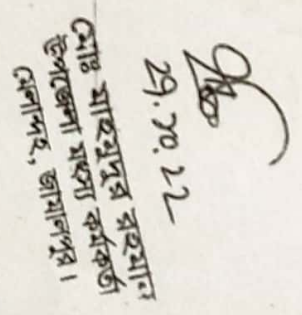 ২৭.১০.২২
মোঃ মাহমুদুর রহমান
উপজেলা মৎস্য কর্মকর্তা
মেলান্দহ, জামালপুর।